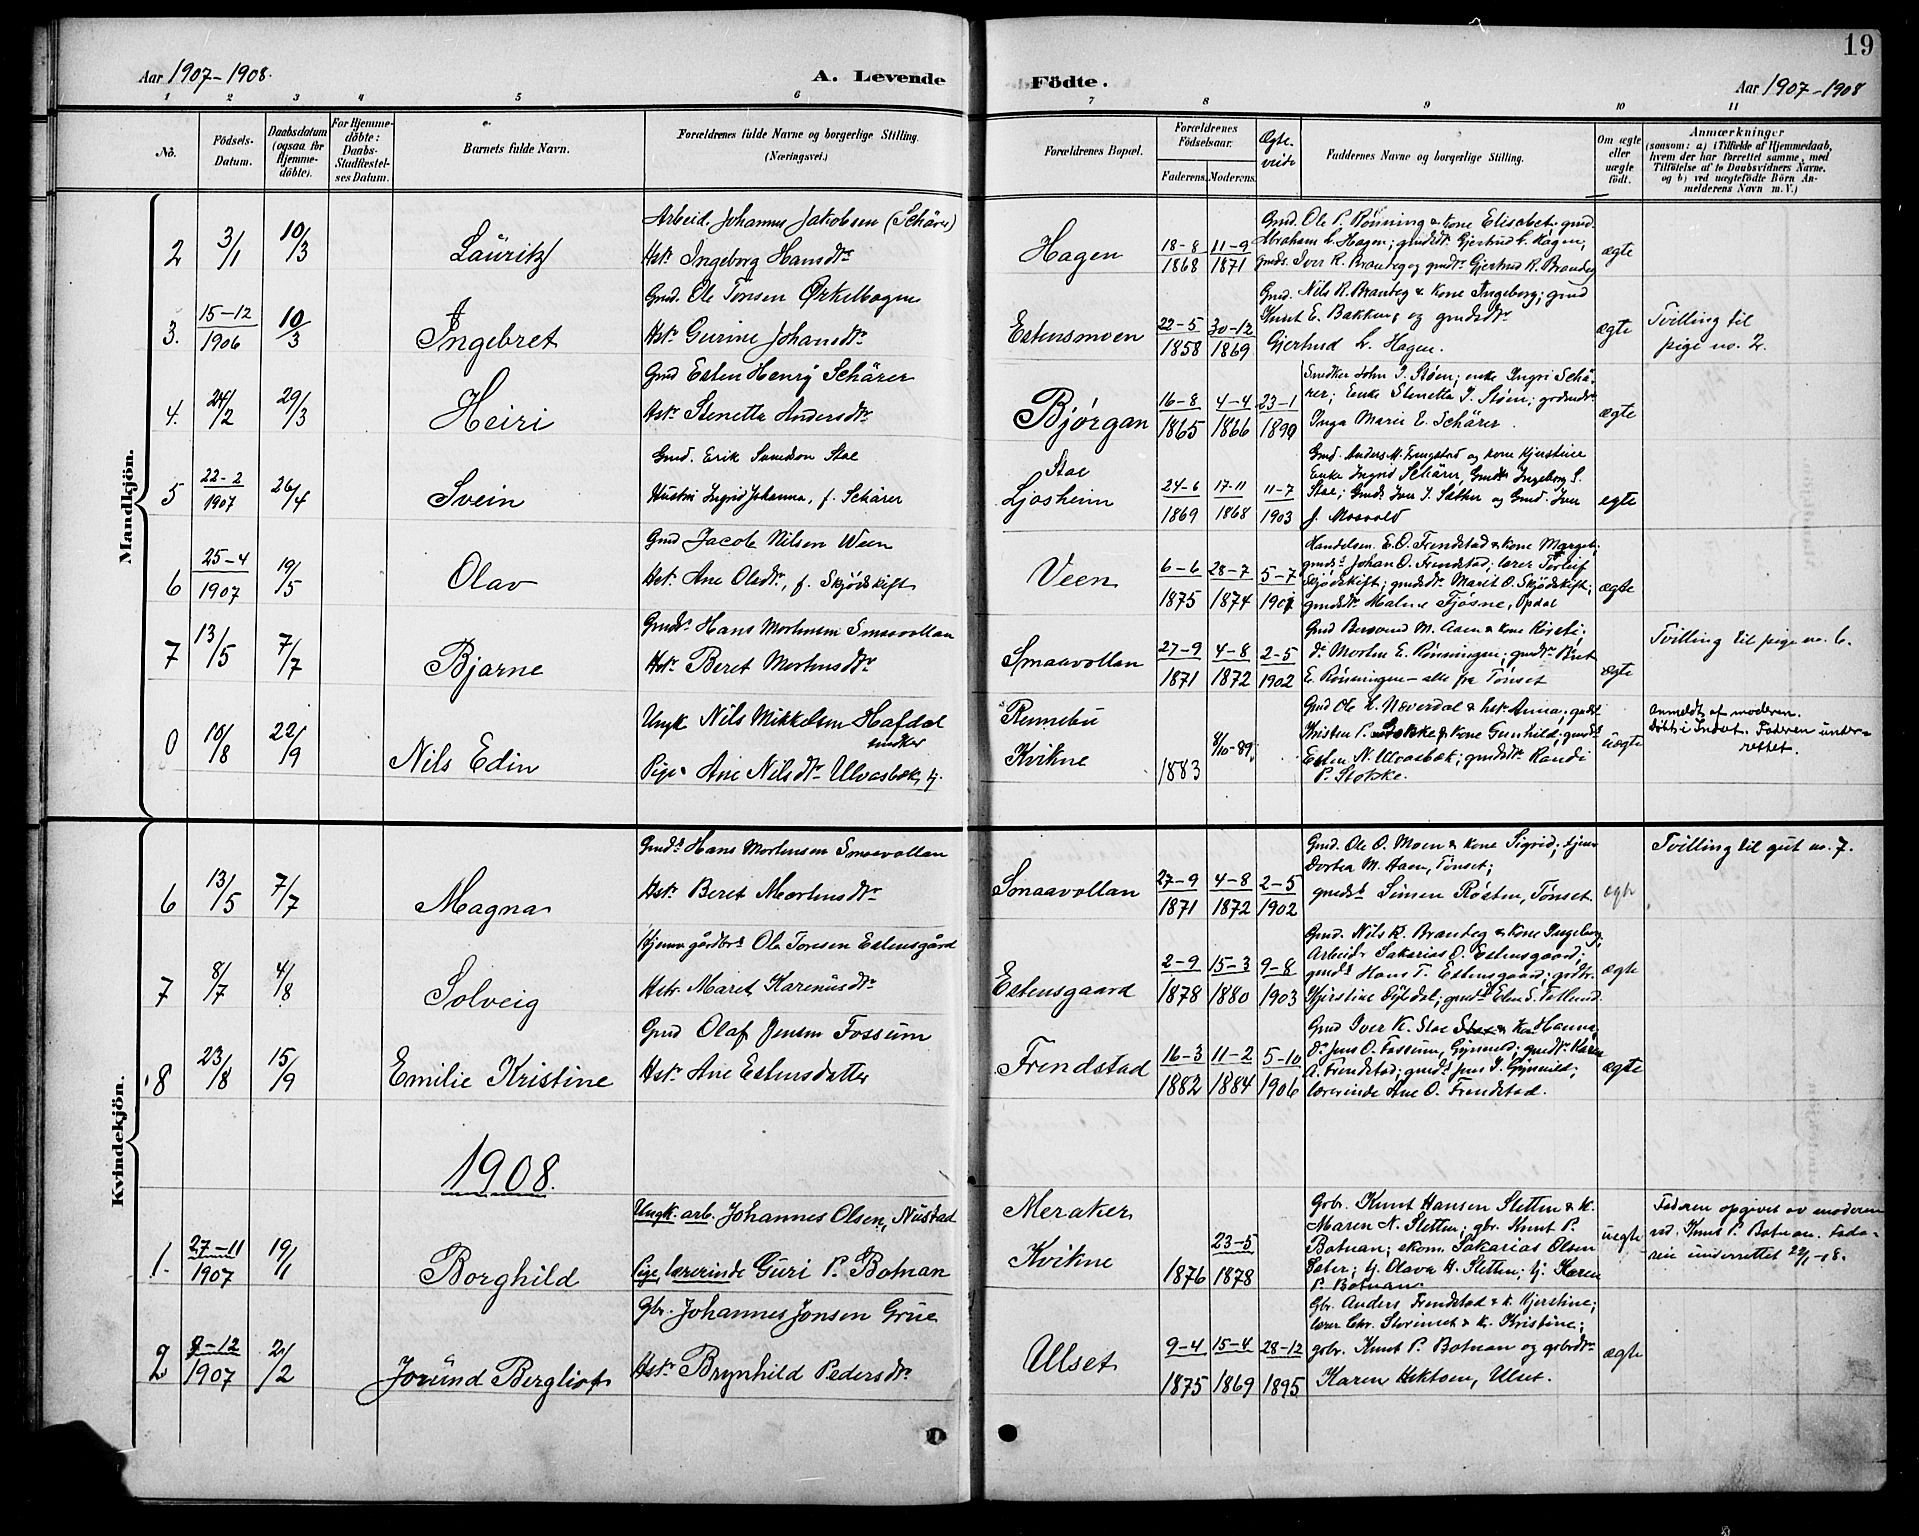 19
Aar 1907-1908.
A. Levende
Födte.
Aar 1907-1908
1 2 3 4 5 6 7 8 9 10 11
No.
Födsels-Datum.
Daabsdatum (ogsaa for Hjemmedöbte).
For Hjemmedöbte: Daabs-Stadfæstelses Datum.
Barnets fulde Navn.
Forældrenes fulde Navne og borgerlige Stilling.
(Næringsvei.)
Forældrenes Bopæl.
Forældrenes Födselsaar.
Faderens. Moderens.
Ægtevviede
Faddernes Navne og borgerlige Stilling.
Om ægte eller uægte födt.
Anmærkninger
(saasom: a) i Tilfælde af Hjemmedaab, hvem der har forrettet samme, med Tilföielse af to Daabsvidners Navne, og b) ved uægtefödte Börn Anmelderens Navn m. V.)
Mandkjön.
2 3/1 10/3 Lauritz
Arbeid. Johannes Jakobsen (Schärer)
Hstr Ingeborg Hansdtr
Hagen 18-8 1868 11-9 1871
Gmd. Ole P. Rønning & kone Elisabet; gmd.
Abraham L. Hagen; gmdsdtr Gjertrud L. Hagen;
gmds. Iver R. Brandeg og gmdtr Gjertrud R. Brandeg
ægte
3. 15-12 1906 10/3 Ingebret
Gmd. Ole Tonsen Ørkelbogen
Hstr Gurine Johansdtr
Estensmoen 22-5 1858 30-12 1869
Gmd. Nils R. Brandeg & kone Ingeborg; gmd
Knut E. Bakken, og gmdsdtr
Gjertrud L. Hagen.
ægte
Tvilling til
pige no. 2.
4. 24/2 29/3 Heiri
Gmd Esten Henry Schärer
Hstr Stenetta Andersdtr
Bjørgan 16-8 1865 4-4 1866 23-1 1890
Snedker John J. Støen; enke Ingri Schä-
rer; Enke Stenetta J. Støen; gmdsdtr
Inga Marie E. Schärer.
ægte
5 22-2 1907 26/4 Svein
Gmd. Erik Svendson Stae
Hustru Ingrid Johanna, f. Schärer
Stae
Ljosheim 24-6 1869 17-11 1868 11-7 1903
Gmd. Anders M. Frengstad og kone Kjerstine
Enke Ingrid Schärer, Gmdtr Ingeborg S.
Stae; Gmds Iver J. Sæther og Gmd. Iver
J. Mosvold
egte
6 25-4 1907 19/5 Olav
Gmd Jacob Nilsen Ween
Hstr Ane Olsdtr, f. Skjødskift
Veen 6-6 1875 28-7 1874 5-7 1901
Handelsm. E. O. Frendstad & kone Margit;
gmds. Johan O. Frendstad; lærer Torleif
Skjødskift; gmdsdtr Marit O. Skjødskift;
gmdsdtr Malene Fjøsne, Opdal
ægte
7 13/5 7/7 Bjarne
Gmds. Hans Mortensen Smaavollan
Hstr Beret Mortensdtr
Smaavollan 27-9 1871 4-8 1872 2-5 1902
Gmd Bersvend M. Aaen & kone Kirsti;
do Morten E. Rønningen; gmdtr Brit
E. Rønningen - alle fra Tønset
ægte
Tvilling til pige no. 6.
0 10/8 22/9 Nils Edin
Ungk Nils Mikkelsen Hafdal
snedker
Pige Ane Nilsdtr Ulvasbæk, tj.
Rennebu
Kvikne 1883 8/10-89.
Gmd Ole L. Næverdal & hstr Anna; gmds
Kristen P. Stolske & kone Gunhild; gmds
Esten N. Ulvasbæk; gmdsdtr Randi
P. Stolske.
uægte
Anmeldt af moderen.
Døbt i Indset. Faderen under-
rettet.
Kvindekjön.
6 13/5 7/7 Magna
Gmds Hans Mortensen Smaavollan
Hstr Beret Mortensdtr
Smaavollan 27-9 1871 4-8 1872 2-5 1902
Gmd. Ole O. Moen & kone Sigrid; tjener
Dortea M. Aaen, Tønset;
gmds Simen Røsten, Tønset.
ægte
Tvilling til gut no. 7.
7 8/7 4/8 Solveig
Hjemv gårdbr. Ole Toresen Estensgård
Hstr. Maret Karenusdtr
Estensgaard 2-9 1878 15-3 1880 9-8 1903
Gmd. Nils R. Brandeg & kone Ingeborg
Arbeidr Sakarias O. Estensgaard;
gmds Hans T. Estensgaard;
Kjerstine Eggedal; gmdsdtr Elen S. Tollund.
ægte
8 23/8 15/9 Emilie Kristine
Gmd Olaf Jensen Fossum
Hstr Ane Estensdatter
Frendstad 16-3 1882 11-2 1884 5-10 1906
Gmd Iver K. Stae & k. Hanna;
Do Jens O. Fossum, Gjynvild; gmdtr Karen
A. Frendstad; gmds Jens J. Gjynvild;
lærerinde Ane O. Frendstad.
ægte
1908.
1. 27-11 1907 19/1 Borghild
Ungk. arb. Johannes Olsen, Nustad
Pige, lærerinde Guri P. Botnan
Meraker
Kvikne 1876 23-5 1878
Gbr. Knut Hansen Sletten & k.
Maren N. Sletten; gbr. Knut P.
Botnan; ekom. Sakarias Olsen
Sæter; tj. Olava H. Sletten; tj. Karen
P. Botnan.
uægte
Faderen opgivet av moderen
ved Knut P. Botnan. Fade-
ren underrettet 22/1-08.
2 9-12 1907 2/2 Jorund Bergliot
Gbr. Johannes Jonsen Grue
Hstr Brynhild Pedersdtr
Ulset 9-4 1875 15-4 1869 28-12 1895
Gbr. Anders Frendstad & k. Kjerstine;
lærer Chr. Storemet & k. Kristine;
gbr. Knut P. Botnan og gbrdtr
Karen Hektoen, Ulset.
ægte